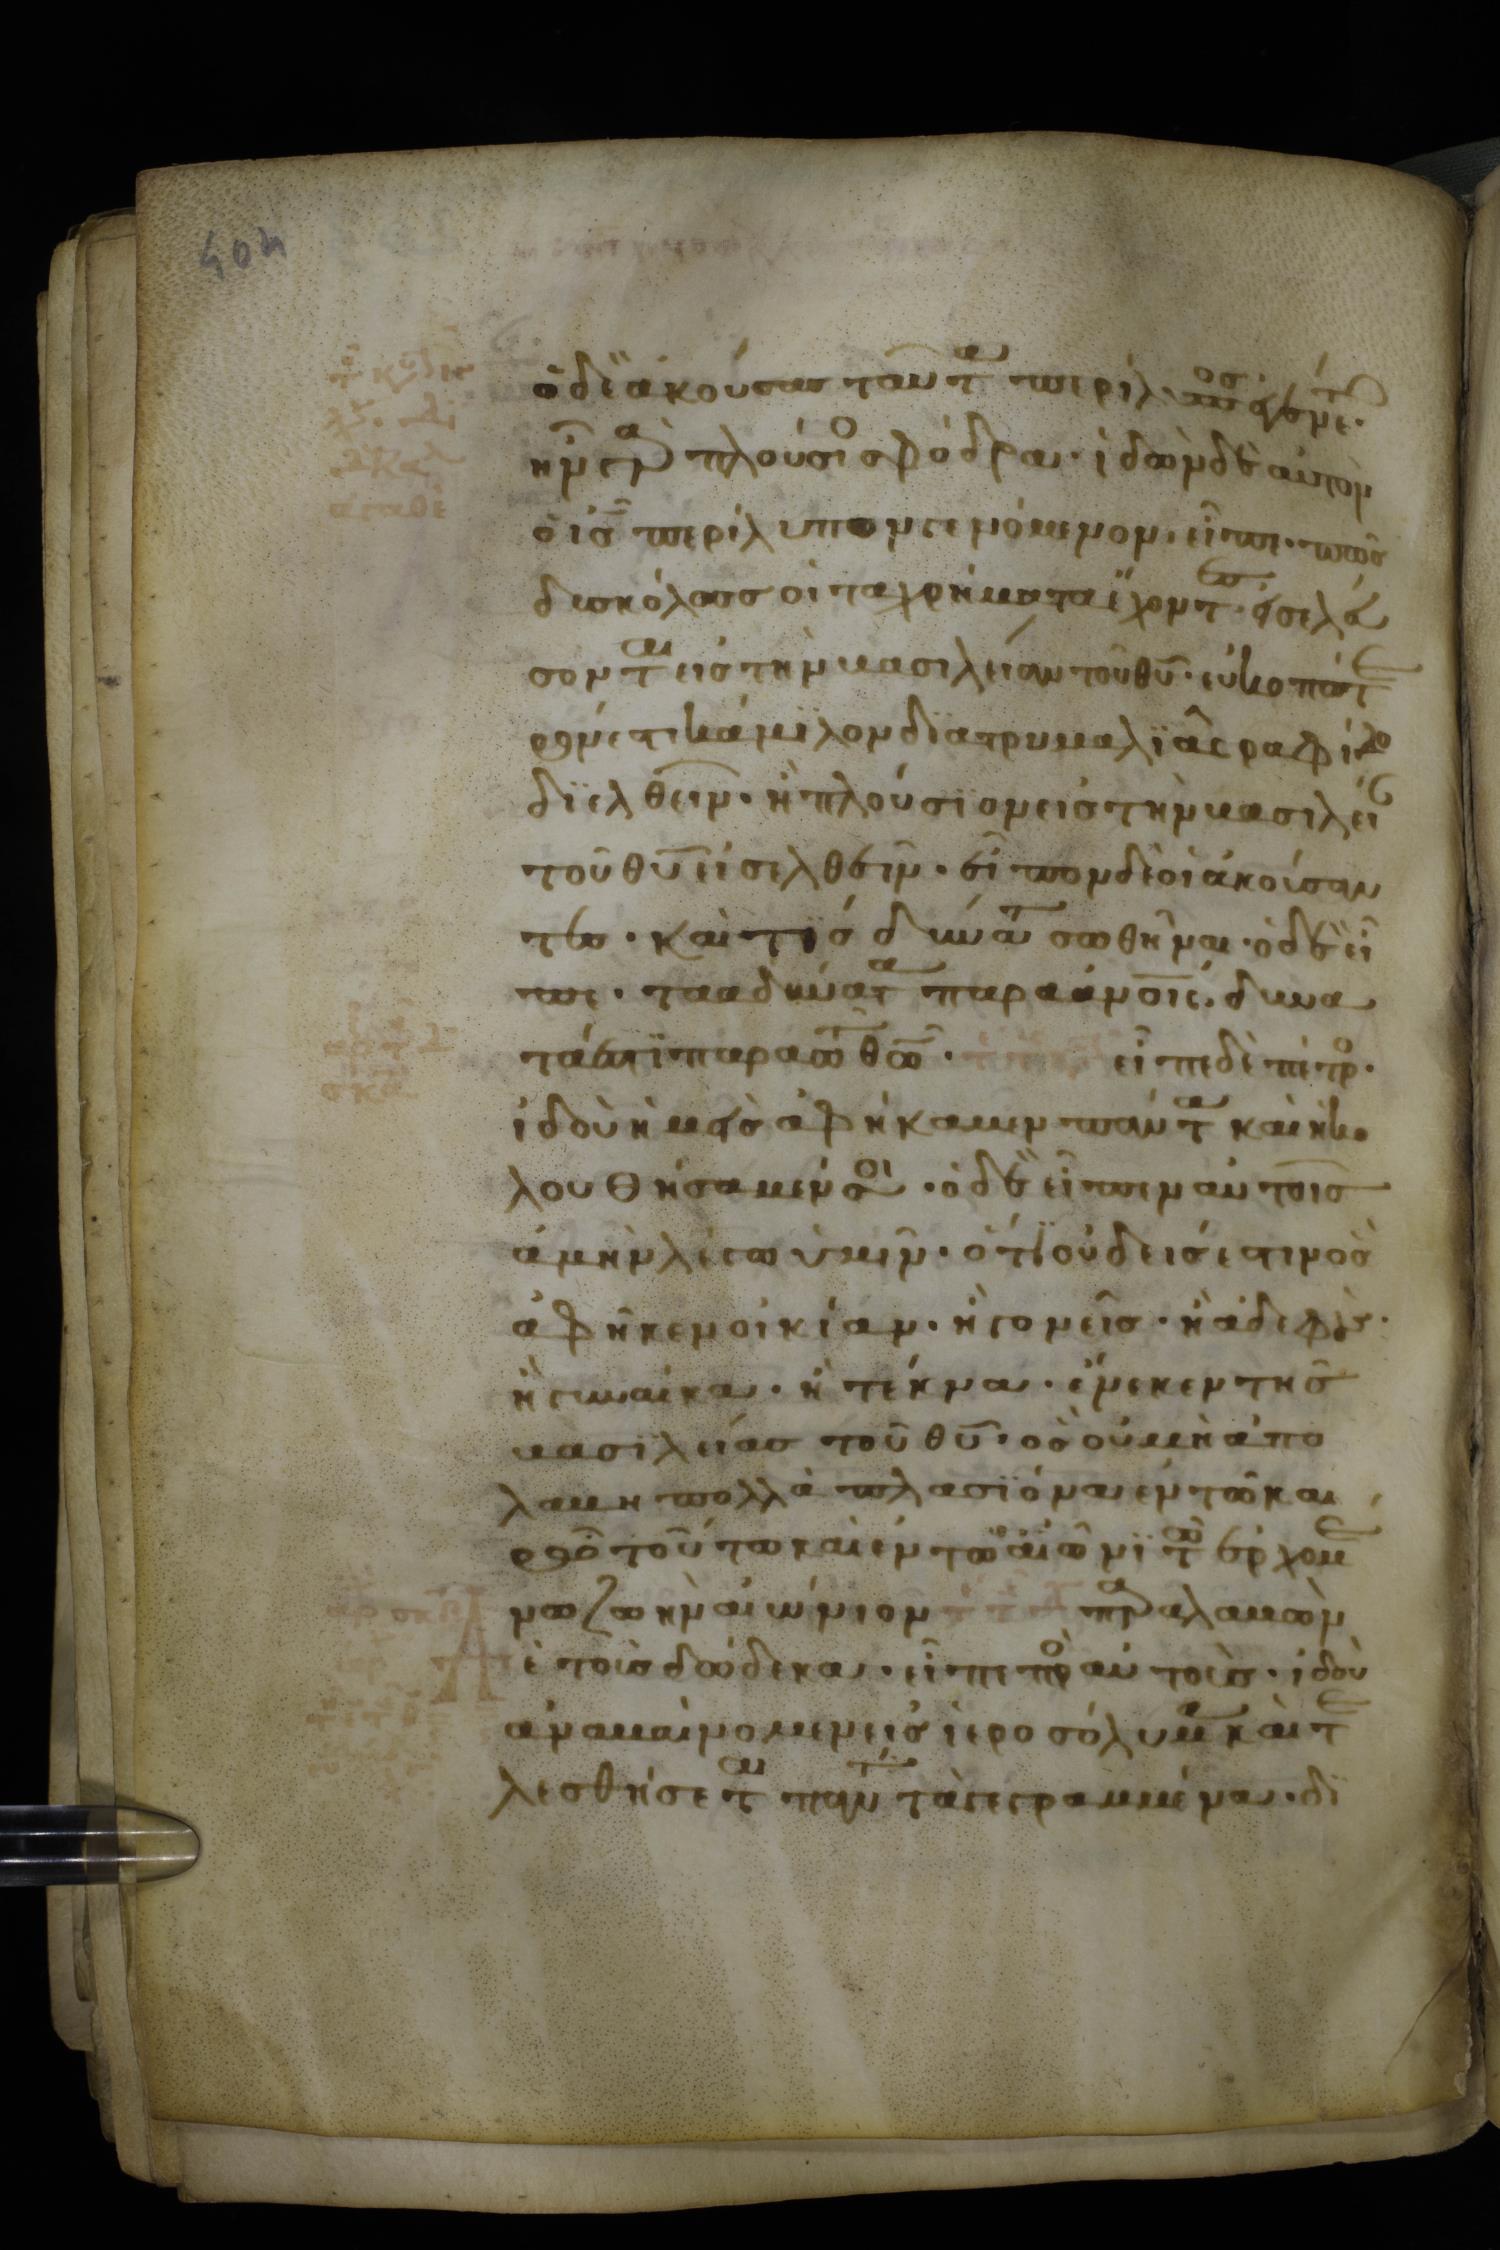 ὁ δὲ ἀκούσας ταῦτα περίλυπος ἐγένετο.
ἦν γὰρ πλούσιος σφόδρα· ἰδὼν δὲ αὐτὸν
ὁ ι̅ς̅ περίλυπον γενόμενον. εἶπε· πῶς
δυσκόλως οἱ τὰ χρήματα ἔχοντες εἰσελεύ
σονται εἰς τὴν βασιλείαν τοῦ θ̅υ̅· εὐκοπώτε
ρον ἐστι κάμϊλον διὰ τρυμαλϊᾶς ραφίδο
διελθεῖν· ἢ πλούσιον εἰς τὴν βασιλεί
τοῦ θ̅υ̅ εἰσελθεῖν· εἶπον δὲ οἱ ἀκούσαν
τες· καὶ τίς δύναται σωθῆναι· ὁ δὲ εἶ
πε· τὰ ἀδύνατα παρὰ ἀν̅ο̅ι̅ς̅ δυνα
τά ἐστι παρὰ τῶ θ̅ω̅· εἶπε δὲ πέτρος·
ἰδοὺ ἡμεῖς ἀφήκαμεν πάντα καὶ ἠκο
λουθήσαμέν σοι· ὁ δὲ εἶπεν αὐτοῖς
ἀμὴν λέγω ὑμῖν· ὅτι οὐδείς ἐστιν ὃς
ἀφῆκεν οἰκίαν· ἢ γονεῖς· ἢ ἀδεφοὺς·
ἢ γυναίκα· ἢ τέκνα· ἕνεκεν τῆς
βασιλείας τοῦ θ̅υ̅· ὃς οὐ μὴ ἀπο
λαβη πολλαπλασίονα ἐν τῶ και
ρῶ τούτω καὶ ἐν τῶ αἰῶνι τῶ ἐρχομέ
νω ζωὴν αἰώνιον παραλαβὼν
ὲ τοὺς δώδεκα· εἶπε πρὸς αὐτοὺς· ἰδοὺ
ἀναβαίνομεν εἰς ἱεροσόλυμα καὶ τε
λεσθήσεται πάντα τὰ γεγραμμένα· δϊ